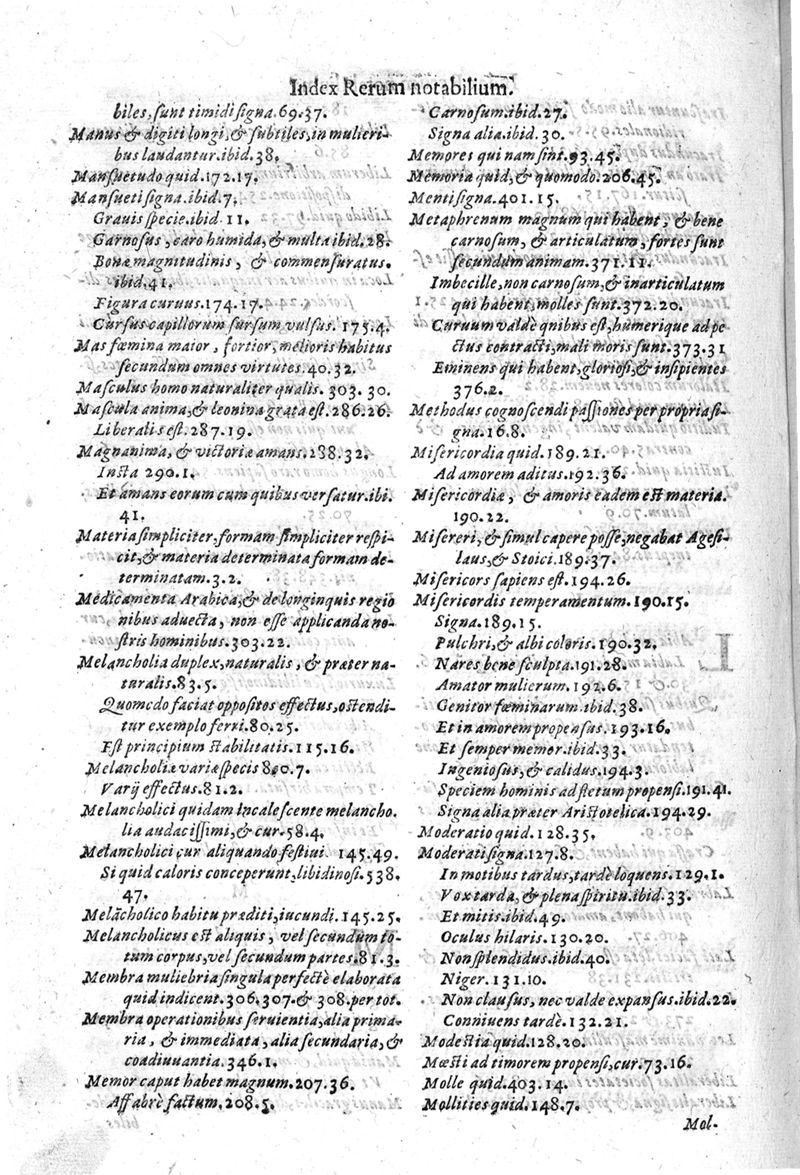 Index Rerum notabilium.
biles, sunt timidi signa. 69.37.
Manus & digiti longi, & subtiles, in mulieri-
bus laudantur. ibid. 38.
Mansuetudo quid. 172.17.
Mansueti signa. ibid. 7.
Grauis specie. ibid 11.
Carnosus, caro humida, & multa ibid. 28.
Bonæ magnitudinis, & commensuratus.
ibid. 41.
Figura curuus. 174.17.
Cursus capillorum sursum vulsus. 175.4.
Mas fœmina maior, fortior, melioris habitus
secundum omnes virtutes. 40.32.
Masculus homo naturaliter qualis. 303.30.
Mascula anima, & leonina grata est. 286.26.
Liberalis est. 287.19.
Magnanima, & victoriæ amans. 288.32.
Iusta 290.1.
Et amans eorum cum quibus versatur. ibi.
41.
Materia simpliciter, formam simpliciter respi-
cit, & materia determinata formam de-
terminatam. 3.2.
Medicamenta Arabica, & de longinquis regio
nibus aduecta, non esse applicanda no-
stris hominibus. 303.22.
Melancholia duplex, naturalis, & præter na-
turalis. 83.5.
Quomodo faciat oppositos effectus, ostendi-
tur exemplo ferri. 80.25.
Est principium stabilitatis. 115.16.
Melancholiæ variæ specis 80.7.
Varij effectus. 81.2.
Melancholici quidam incalescente melancho.
lia audacissimi, & cur. 58.4.
Melancholici cur aliquando festiui 145.49.
Si quid caloris conceperunt, libidinosi. 538.
47.
Melãcholico habitu præditi, iucundi. 145.25.
Melancholicus est aliquis, vel secundum to-
tum corpus, vel secundum partes. 81.3.
Membra muliebria singula perfectè elaborata
quid indicent. 306, 307. & 308. per tot.
Membra operationibus seruientia, alia prima-
ria, & immediata, alia secundaria, &
coadiuuantia. 346.1.
Memor caput habet magnum. 207.36.
Affabrè factum. 208.5.
Carnosum. ibid. 27.
Signa alia. ibid. 30.
Memores qui nam sint. 93.45.
Memoria quid, & quomodo. 206.45.
Menti signa. 401.15.
Metaphrenum magnum qui habent, & bene
carnosum, & articulatum, fortes sunt
secundum animam. 371.11.
Imbecille, non carnosum, & inarticulatum
qui habent, molles sunt. 372.20.
Curuum valdè qnibus est, humerique ad pe-
ctus contracti, mali moris sunt. 373.31
Eminens qui habent, gloriosi, & insipientes
376.2.
Methodus cognoscendi passiones per propria si-
gna. 16.8.
Misericordia quid. 189.21.
Ad amorem aditus. 192.36.
Misericordiæ, & amoris eadem est materia.
190.22.
Misereri, & simul capere posse, negabat Agesi-
laus, & Stoici. 189.37.
Misericors sapiens est. 194.26.
Misericordis temperamentum. 190.15.
Signa. 189.15.
Pulchri, & albi coloris. 190.32.
Nares bene sculpta. 191.28.
Amator mulierum. 192.6.
Genitor fœminarum. ibid. 38.
Et in amorem propensus. 193.16.
Et semper memor. ibid. 33.
Ingeniosus, & calidus. 194.3.
Speciem hominis ad fletum propensi. 191.41.
Signa alia præter Aristotelica. 194.29.
Moderatio quid. 128.35.
Moderati signa. 127.8.
In motibus tardus, tardè loquens. 129.1.
Vox tarda, & plena spiritu. ibid. 33.
Et mitis. ibid. 49.
Oculus hilaris. 130.20.
Non splendidus. ibid. 40.
Niger. 131.10.
Non clausus, nec valde expansus. ibid. 22.
Conniuens tardè. 132.21.
Modestia quid. 128.20.
Mœsti ad timorem propensi, cur. 73.16.
Molle quid. 403.14.
Mollities quid. 148.7.
Mol-